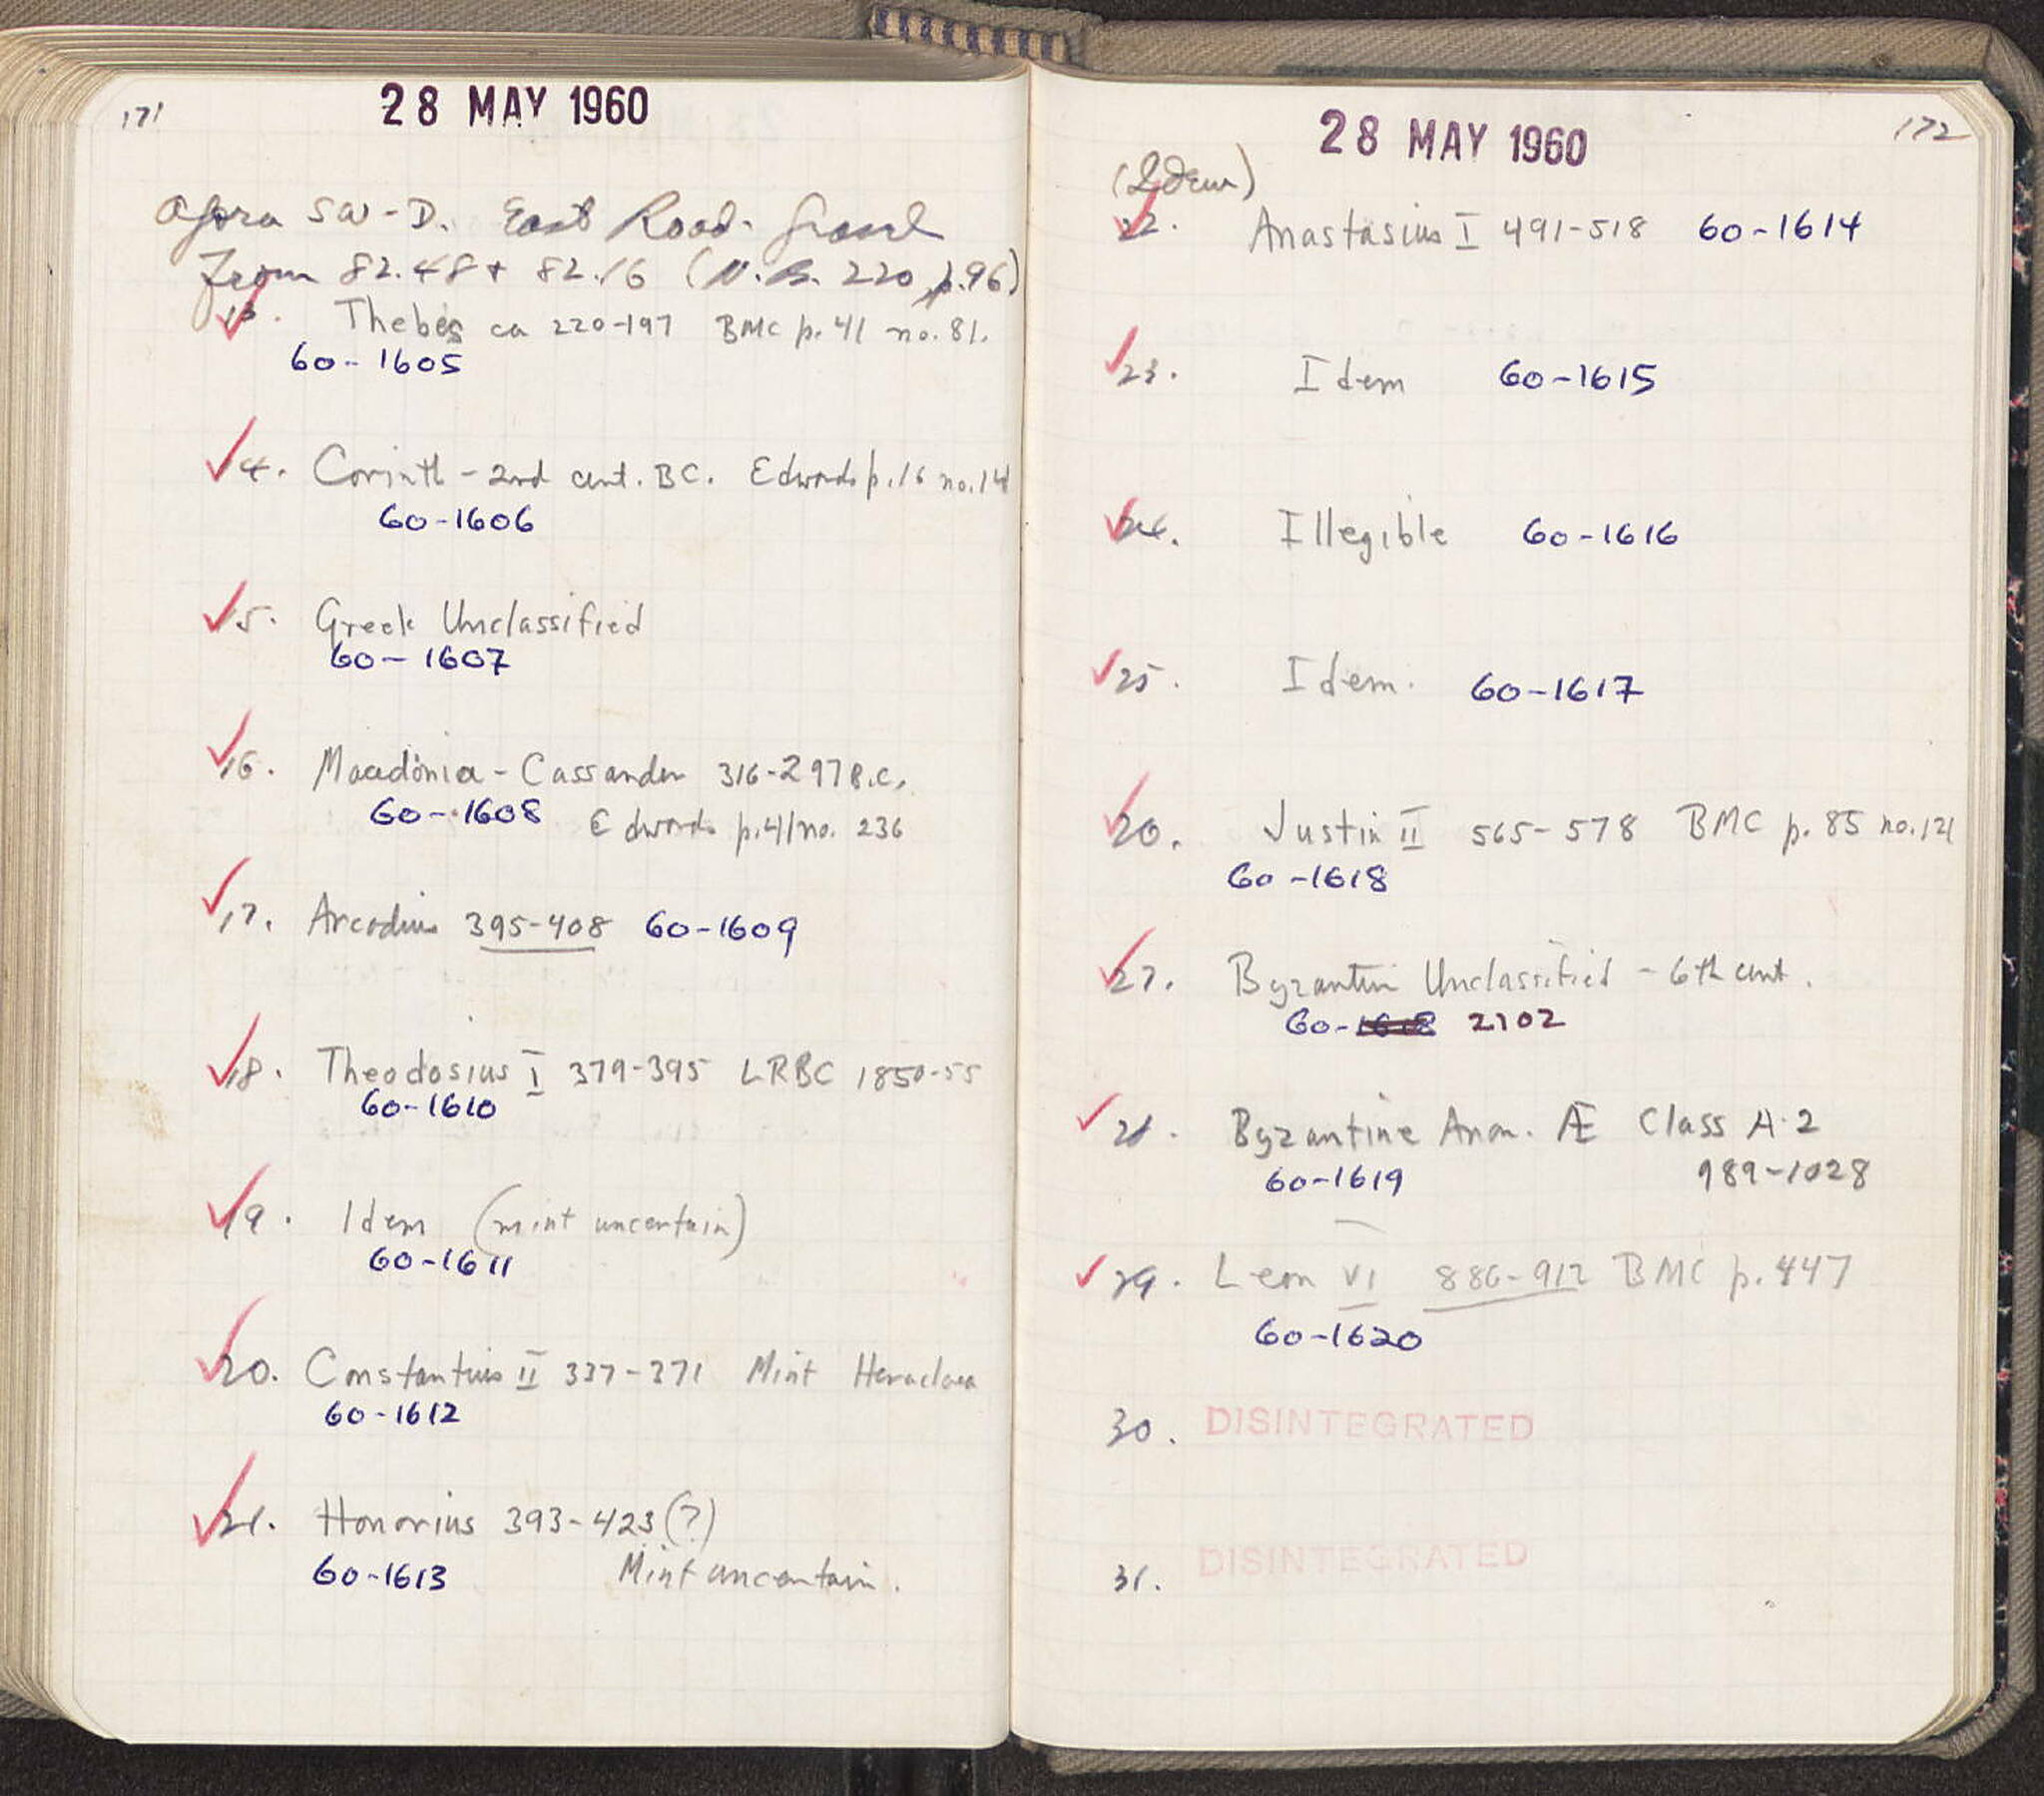 171
28 MAY 1960
Agora SW-D. East Road - Gravel
From 82.48 + 82.16 (N.B. 220 p.96)
13. Thebes ca 220-197 BMC p.41 no.81.
60-1605
14. Corinth - 2nd cent. BC. Edwards p.16 no.14
60-1606
15. Greek Unclassified
60-1607
16. Macedonia - Cassander 316-297 B.C.
60-1608 Edwards p.41 no. 236
17. Arcadius 395-408 60-1609
18. Theodosius I 379-395 LRBC 1850-55
60-1610
19. Idem (mint uncertain)
60-1611
20. Constantius II 337-371 Mint Heraclaea
60-1612
21. Honorius 393-423 (?)
60-1613 Mint uncertain.
172
28 MAY 1960
(Idem)
22. Anastasius I 491-518 60-1614
23. Idem 60-1615
24. Illegible 60-1616
25. Idem. 60-1617
20. Justin II 565-578 BMC p. 85 no.121
60-1618
27. Byzantin Unclassified - 6th cent.
60-1618 2102
28. Byzantine Anon. Æ Class A-2
60-1619 989-1028
29. Leon VI 886-912 BMC p.447
60-1620
30. DISINTEGRATED
31. DISINTEGRATED